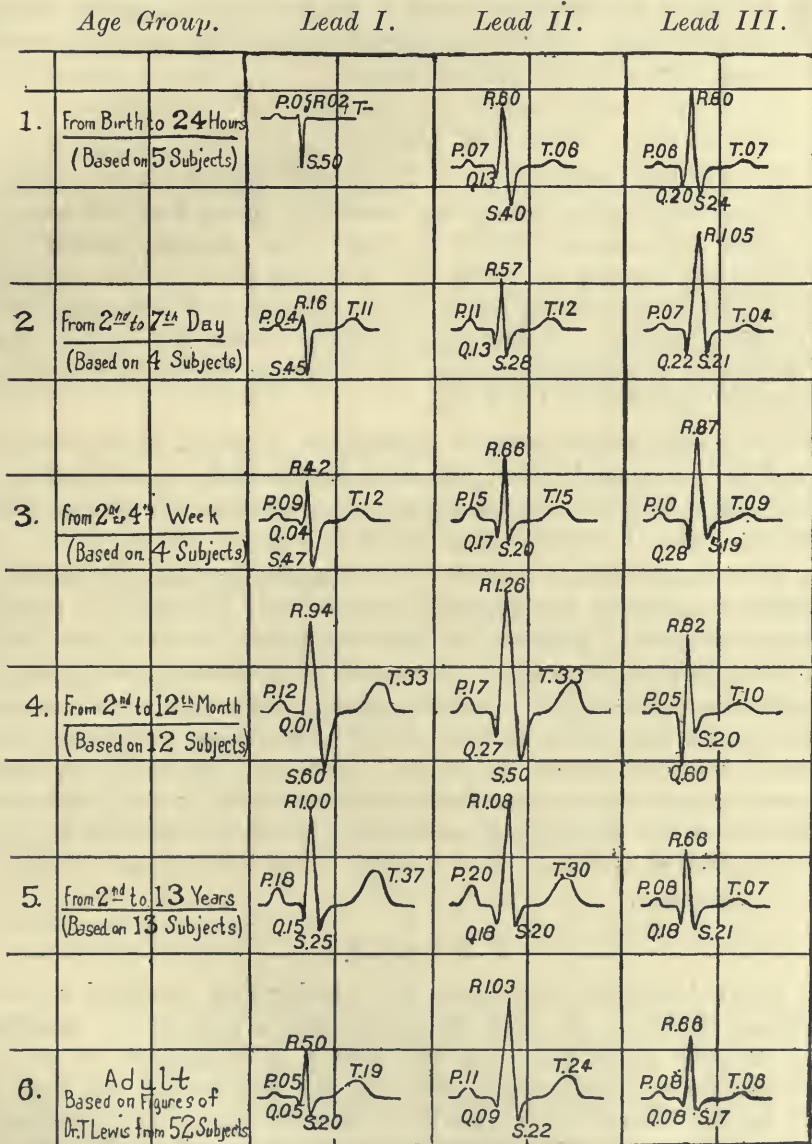 Age Group. Lead I. Lead II. Lead III.
1. From Birth to 24 Hours
(Based on 5 Subjects)
P.05 R.02 T-
S.50
R.60
P.07 T.06
Q.13
S.40
R.80
P.06 T.07
Q.20 S.24
2 From 2nd to 7th Day
(Based on 4 Subjects)
R.16
P.04 T.11
S.45
R.57
P.11 T.12
Q.13 S.28
R.105
P.07 T.04
Q.22 S.21
3. From 2nd to 4th Week
(Based on 4 Subjects)
R.42
P.09 T.12
Q.04
S.47
R.66
P.15 T.15
Q.17 S.20
R.87
P.10 T.09
Q.28 S.19
4. From 2nd to 12th Month
(Based on 12 Subjects)
R.94
P.12 T.33
Q.01
S.60
R1.26
P.17 T.33
Q.27 S.50
R.82
P.05 T.10
S.20
Q.60
5. From 2nd to 13 Years
(Based on 13 Subjects)
R1.00
P.18 T.37
Q.15 S.25
R1.08
P.20 T.30
Q.18 S.20
R.66
P.08 T.07
Q.18 S.21
6. Adult
Based on Figures of
Dr. T Lewis from 52 Subjects
R.50
P.05 T.19
Q.05 S.20
R1.03
P.11 T.24
Q.09 S.22
R.66
P.08 T.08
Q.08 S.17